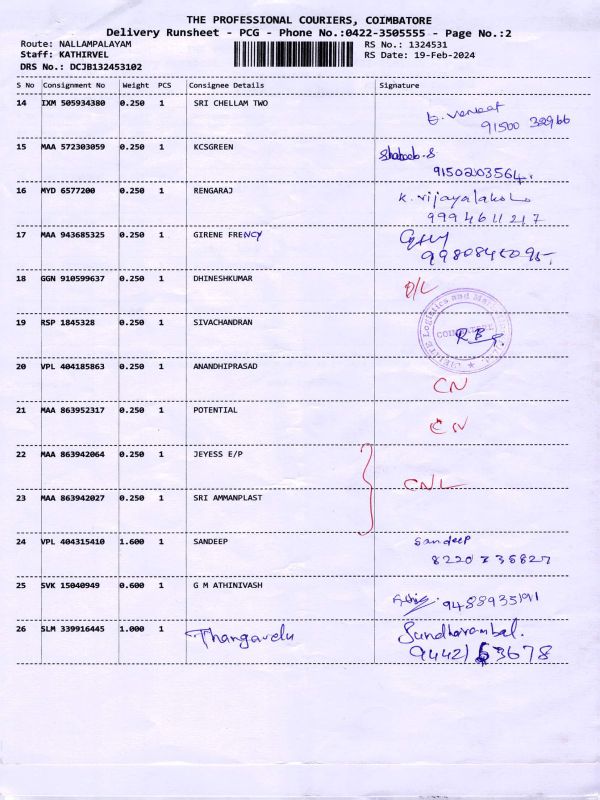 THE PROFESSIONAL COURIERS, COIMBATORE
Delivery Runsheet - PCG - Phone No.:0422-3505555 - Page No.:2
Route: NALLAMPALAYAM RS No.: 1324531
Staff: KATHIRVEL RS Date: 19-Feb-2024
DRS No.: DCJB132453102
S No Consignment No Weight PCS Consignee Details Signature
14 IXM 505934380 0.250 1 SRI CHELLAM TWO
15 MAA 572303059 0.250 1 KCSGREEN
9150203564.
16 MYD 6577200 0.250 1 RENGARAJ K. Vijayalaksh
9994611217
17 MAA 943685325 0.250 1 GIRENE FRENCY
18 GGN 910599637 0.250 1 DHINESHKUMAR D/L
19 RSP 1845328 0.250 1 SIVACHANDRAN
20 VPL 404185863 0.250 1 ANANDHIPRASAD
CN
21 MAA 863952317 0.250 1 POTENTIAL
CN
22 MAA 863942064 0.250 1 JEYESS E/P
CNL
23 MAA 863942027 0.250 1 SRI AMMANPLAST
24 VPL 404315410 1.600 1 SANDEEP Sandeep
25 SVK 15040949 0.600 1 G M ATHINIVASH
26 SLM 339916445 1.000 1 Thangavelu Sundharambal.